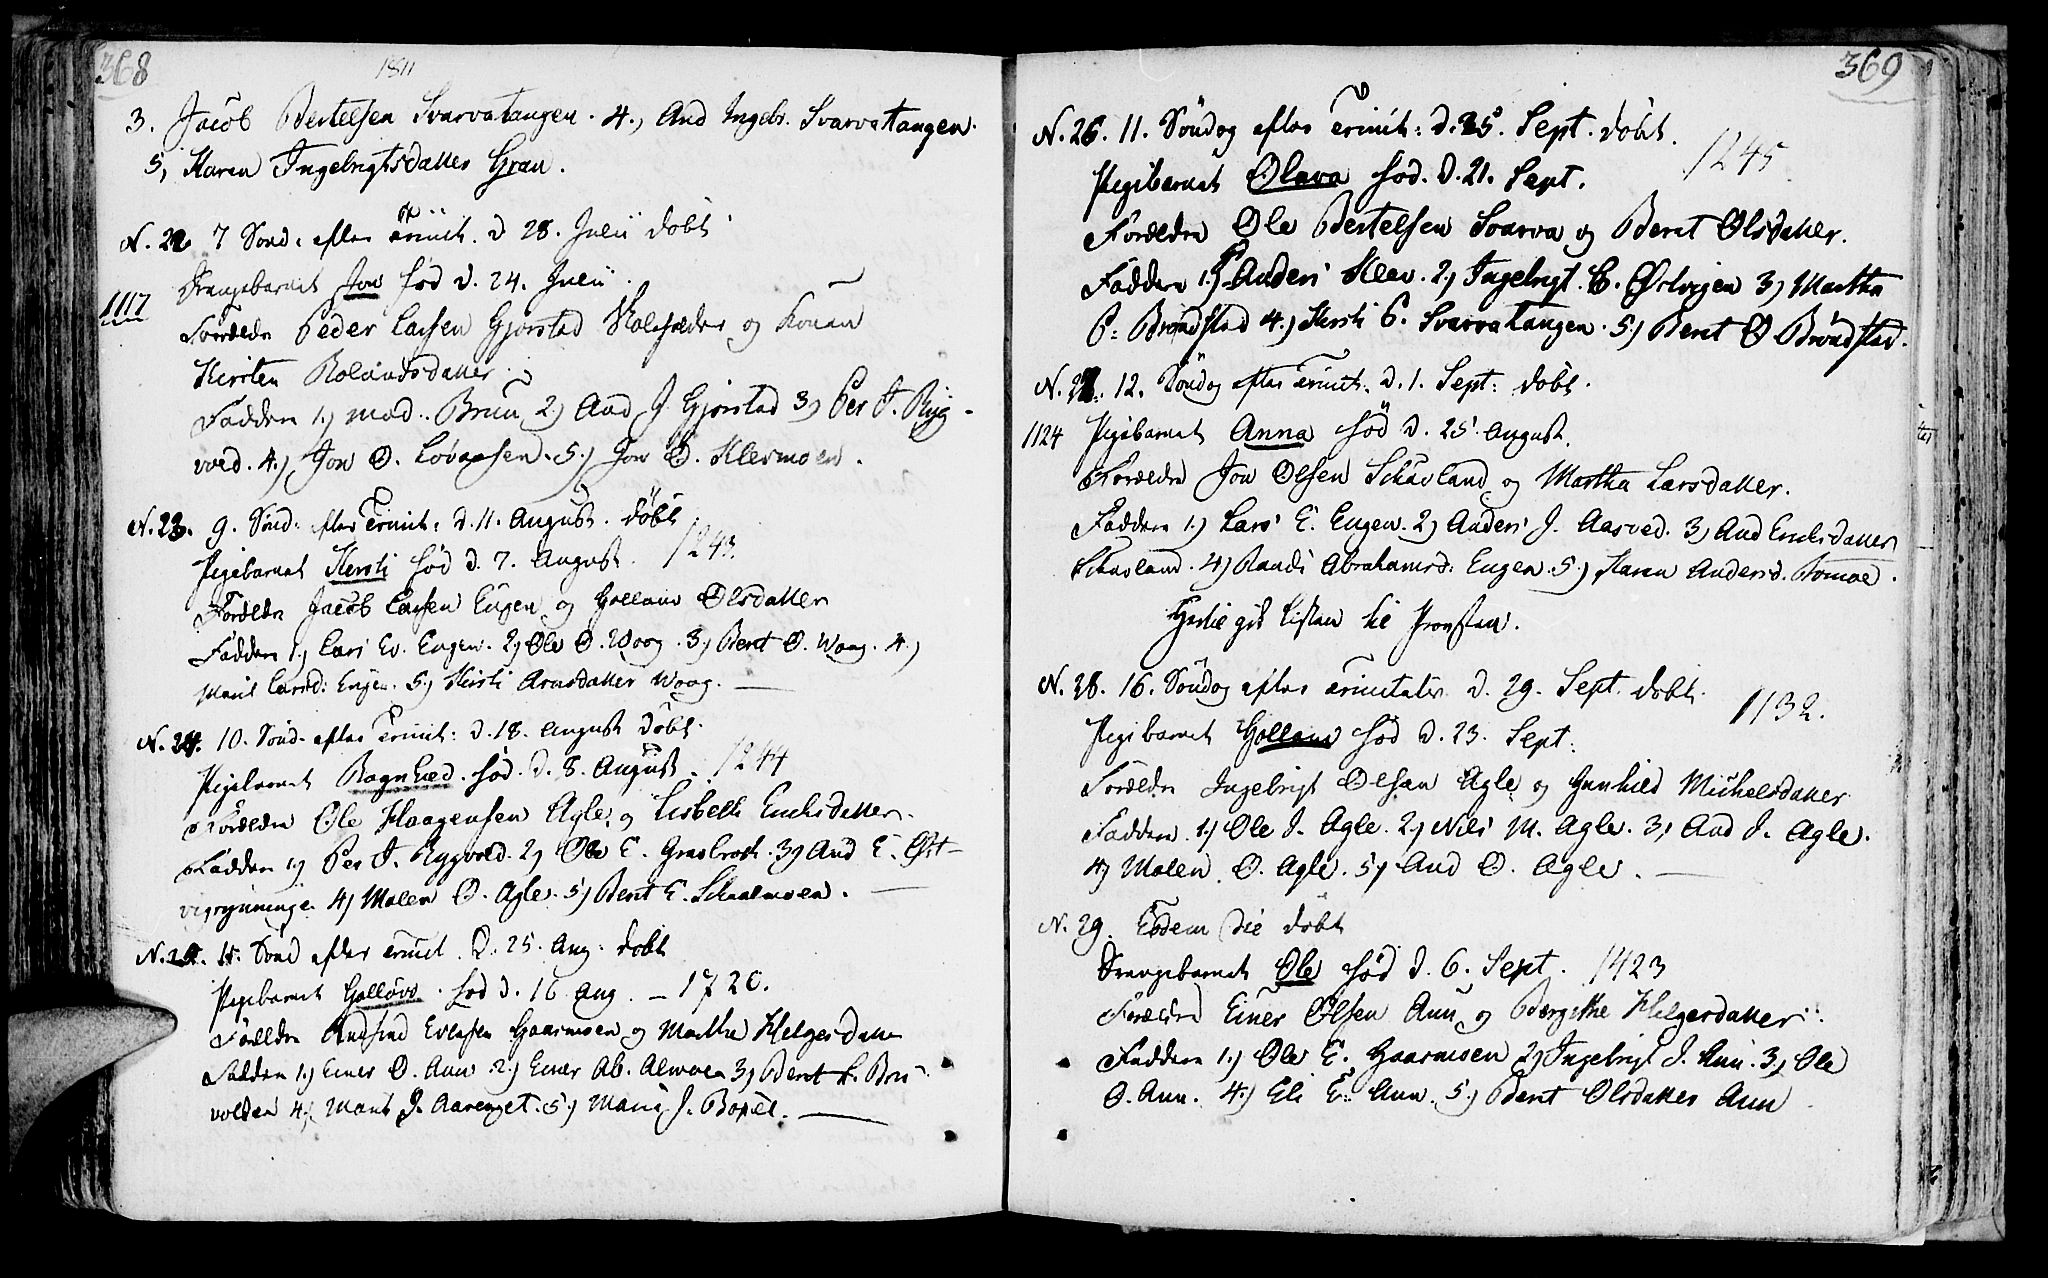 368
1811
3. Jacob Bertelsen Svarvatangen. 4.) And Ingebr. Svarvatangen.
5, Karen Ingebrigtsdatter Grau.
N. 22 7 Sönd. efter Trinit. d 28. Julii döbt
Drengebarnet Jon föd d. 24. Julii.
1117
Forældre Peder Larsen Gjörstad og Konen
Kirsten
Faddere 1.) mad. Brun 2.) And J. Gjörstad 3) Per J. Ryg-
vold. 4.) Jon O. 5.) Jon O. Klermoen.
N. 23. 9. Sönd: efter Trinit: d. 11. August. döbt
Pigebarnet Kersti föd d. 7. August. 1243.
Forældre Jacob Larsen Eugen og Gollaug Olsdatter
Faddere 1.) Lars Ev. Eugen. 2) Ole O. Woog. 3) Berit O. Woog. 4.)
Marit Larsd: Engen. 5.) Kirsti Arnsdatter Woog.
N. 24. 10. Sönd. efter Trinit: d. 18. August döbt.
Pigebarnet Ragnhild. föd. d. 8. August. 1244
Forældre Ole Haagensen Agle og Lisbeth Enchsdatter.
Faddere 1) Per J. Rygvold. 2) Ole E. Grasbrok. 3) And E. Öst-
vigrynninge. 4) Malen O. Agle. 5) Berit E. Schaalmoen.
N. 25. 11. Sönd efter Trinit. d. 25. Aug: döbt
Pigebarnet Golløvs. föd d. 16 Aug. - 1720.
Forældre Gaarmoen og Marthe Helgesdatter
Faddere 1.) Einer O. Aun 2.) Einer Ab. Almoen 3) Berit L. Bru-
volden 4) Marit J. Aarenget. 5.) Marie J. Bopel.
369
N. 26. 11. Söndag efter Trinit: d. 25. Sept. döbt.
1245
Pigebarnet Olava föd. d. 21. Sept.
Forældre Ole Bertelsen Svarva og Berit Olsdatter.
Faddere 1.) Anders Klev. 2) Ingebrigt. C. Östvigen 3) Martha
P. Bröndstad 4.) Kirsti C. Svarvatangen. 5.) Berit O Bröndstad.
N. 27. 12. Söndag efter Trinit: d. 1. Sept: döbt.
1124 Pigebarnet Anna föd d. 25. August.
Forældre Jon Olsen Schavland og Martha Larsdatter.
Faddere 1.) Lars E. Eugen. 2) Anders J. Aasved. 3) And Enchsdatter
Schavland. 4) Randi Abrahamsd. Eugen. 5.) Karen Andersd. Romoe.
Hertil gik Listen til Provsten.
N. 28. 16. Söndag efter Trinitatis d. 29. Sept. döbt.
1132.
Pigebarnet Gollaug föd d. 23. Sept:
Forældre Ingebrigt Olsen Agle og Gunhild Michelsdatter
Faddere. 1.) Ole J. Agle. 2.) Nils M. Agle. 3.) And J. Agle.
4) Malen O. Agle. 5) And O. Agle.
N. 29. Eodem die döbt
Drengebarnet Ole föd d. 6. Sept. 1423
Forældre Einer Olsen Aun og Bergithe Helgesdatter.
Faddere 1.) Ole E. Gaarmoen 2) Ingebrigt J. Aun. 3) Ole
O. Aun. 4.) Eli E. Aun. 5.) Berit Olsdatter Aun